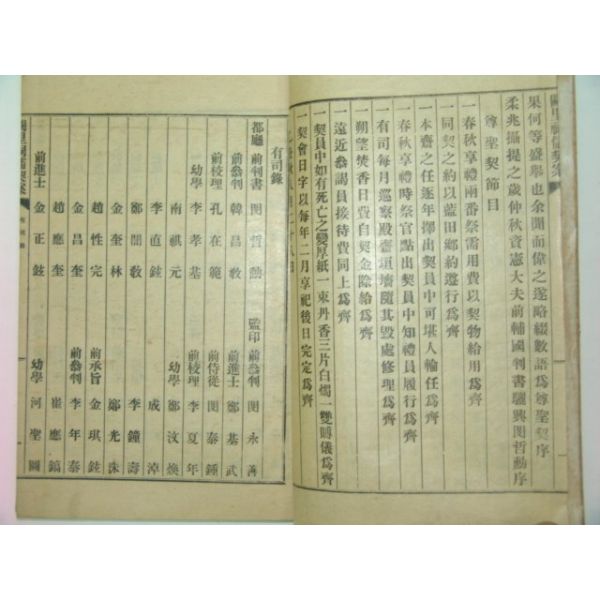 果何等盛擧也余聞而偉之遂略綴數語爲尊聖契序
柔兆攝提之歲仲秋資憲大夫前輔國判書驪興閔哲勳序
尊聖契節目
一春秋享禮兩番祭需用費以契物給用爲齊
一同契之約以藍田鄕約遵行爲齊
一本齋之任逐年擇出契員中可堪人輪任爲齊
一春秋享禮時祭官點出契員中知禮員履行爲齊
一有司每月巡察殿齋垣墻隨其毁處修理爲齊
一朔望焚香日費自契金除給爲齊
一遠近叅謁員接待費同上爲齊
一契員中如有死亡之變厚紙一束丹香三片白燭一雙賻儀爲齊
一契會日字以每年二月享祀後日完定爲齊
有司錄
都廳 前判書 閔哲勳 監印 前叅判 閔永壽
前叅判 韓昌敎 前進士 鄭基武
前校理 孔在範 前侍從 閔泰鍾
幼學 李孝基 前校理 李夏年
南祺元 幼學 鄭汶煥
李直鉉 成 淳
鄭閏敎 李鐘壽
金奎林 鄭光洙
趙性完 前承旨 金琪鉉
金昌奎 前叅判 李年泰
趙應奎 崔應鎬
前進士 金正鉉 幼學 河聖圖